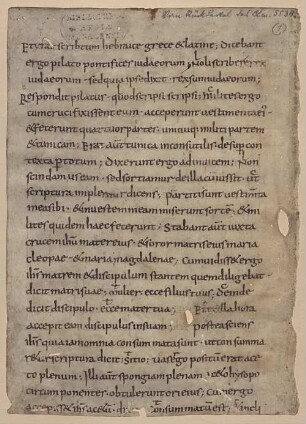 Et erat scribtum hebraice grece & latine; Dicebant
ergo pilato pontifices iudaeorum; Noli scribere rex
iudaeorum sed quia ipse dixit rex sum iudaeorum;
Respondit pilatus quod scripsi scripsi; milites ergo
cum cruci fixissent eum acceperunt vestimenta eius
& fecerunt quattuor partes unicuique militi partem
& tunicam; Erat autem tunica inconsutilis desuper con
texta per totum; Dixerunt ergo ad invicem; Non
scindamus eam sed sortiamur de illa cuius sit ut
scriptura impleatur dicens partiti sunt vestimta
mea sibi & in vestem meam miserunt sorte & mi
lites quidem haec fecerunt; Stabant aut iuxta
crucem ihu mater eius & soror matris eius maria
cleopae & maria magdalenae; Cum vidiss& ergo
ihs matrem & discipulum stantem quem dilige bat
dicit matri suae mulier ecce filius tuus; Deinde
dicit discipulo ecce mater tua Et ex illa hora
accepit eam discipulus in suam postea sciens
ihs quia iam omnia consummata sunt ut consum ma
r& scriptura dicit sitio; vas ergo positu erat ace
to plenum; Illi aut spongiam plenam ac&o hysopo
circum ponentes obtulerunt ori eius; Cum ergo
accepiss& ihs ac&u consummatu est; incli